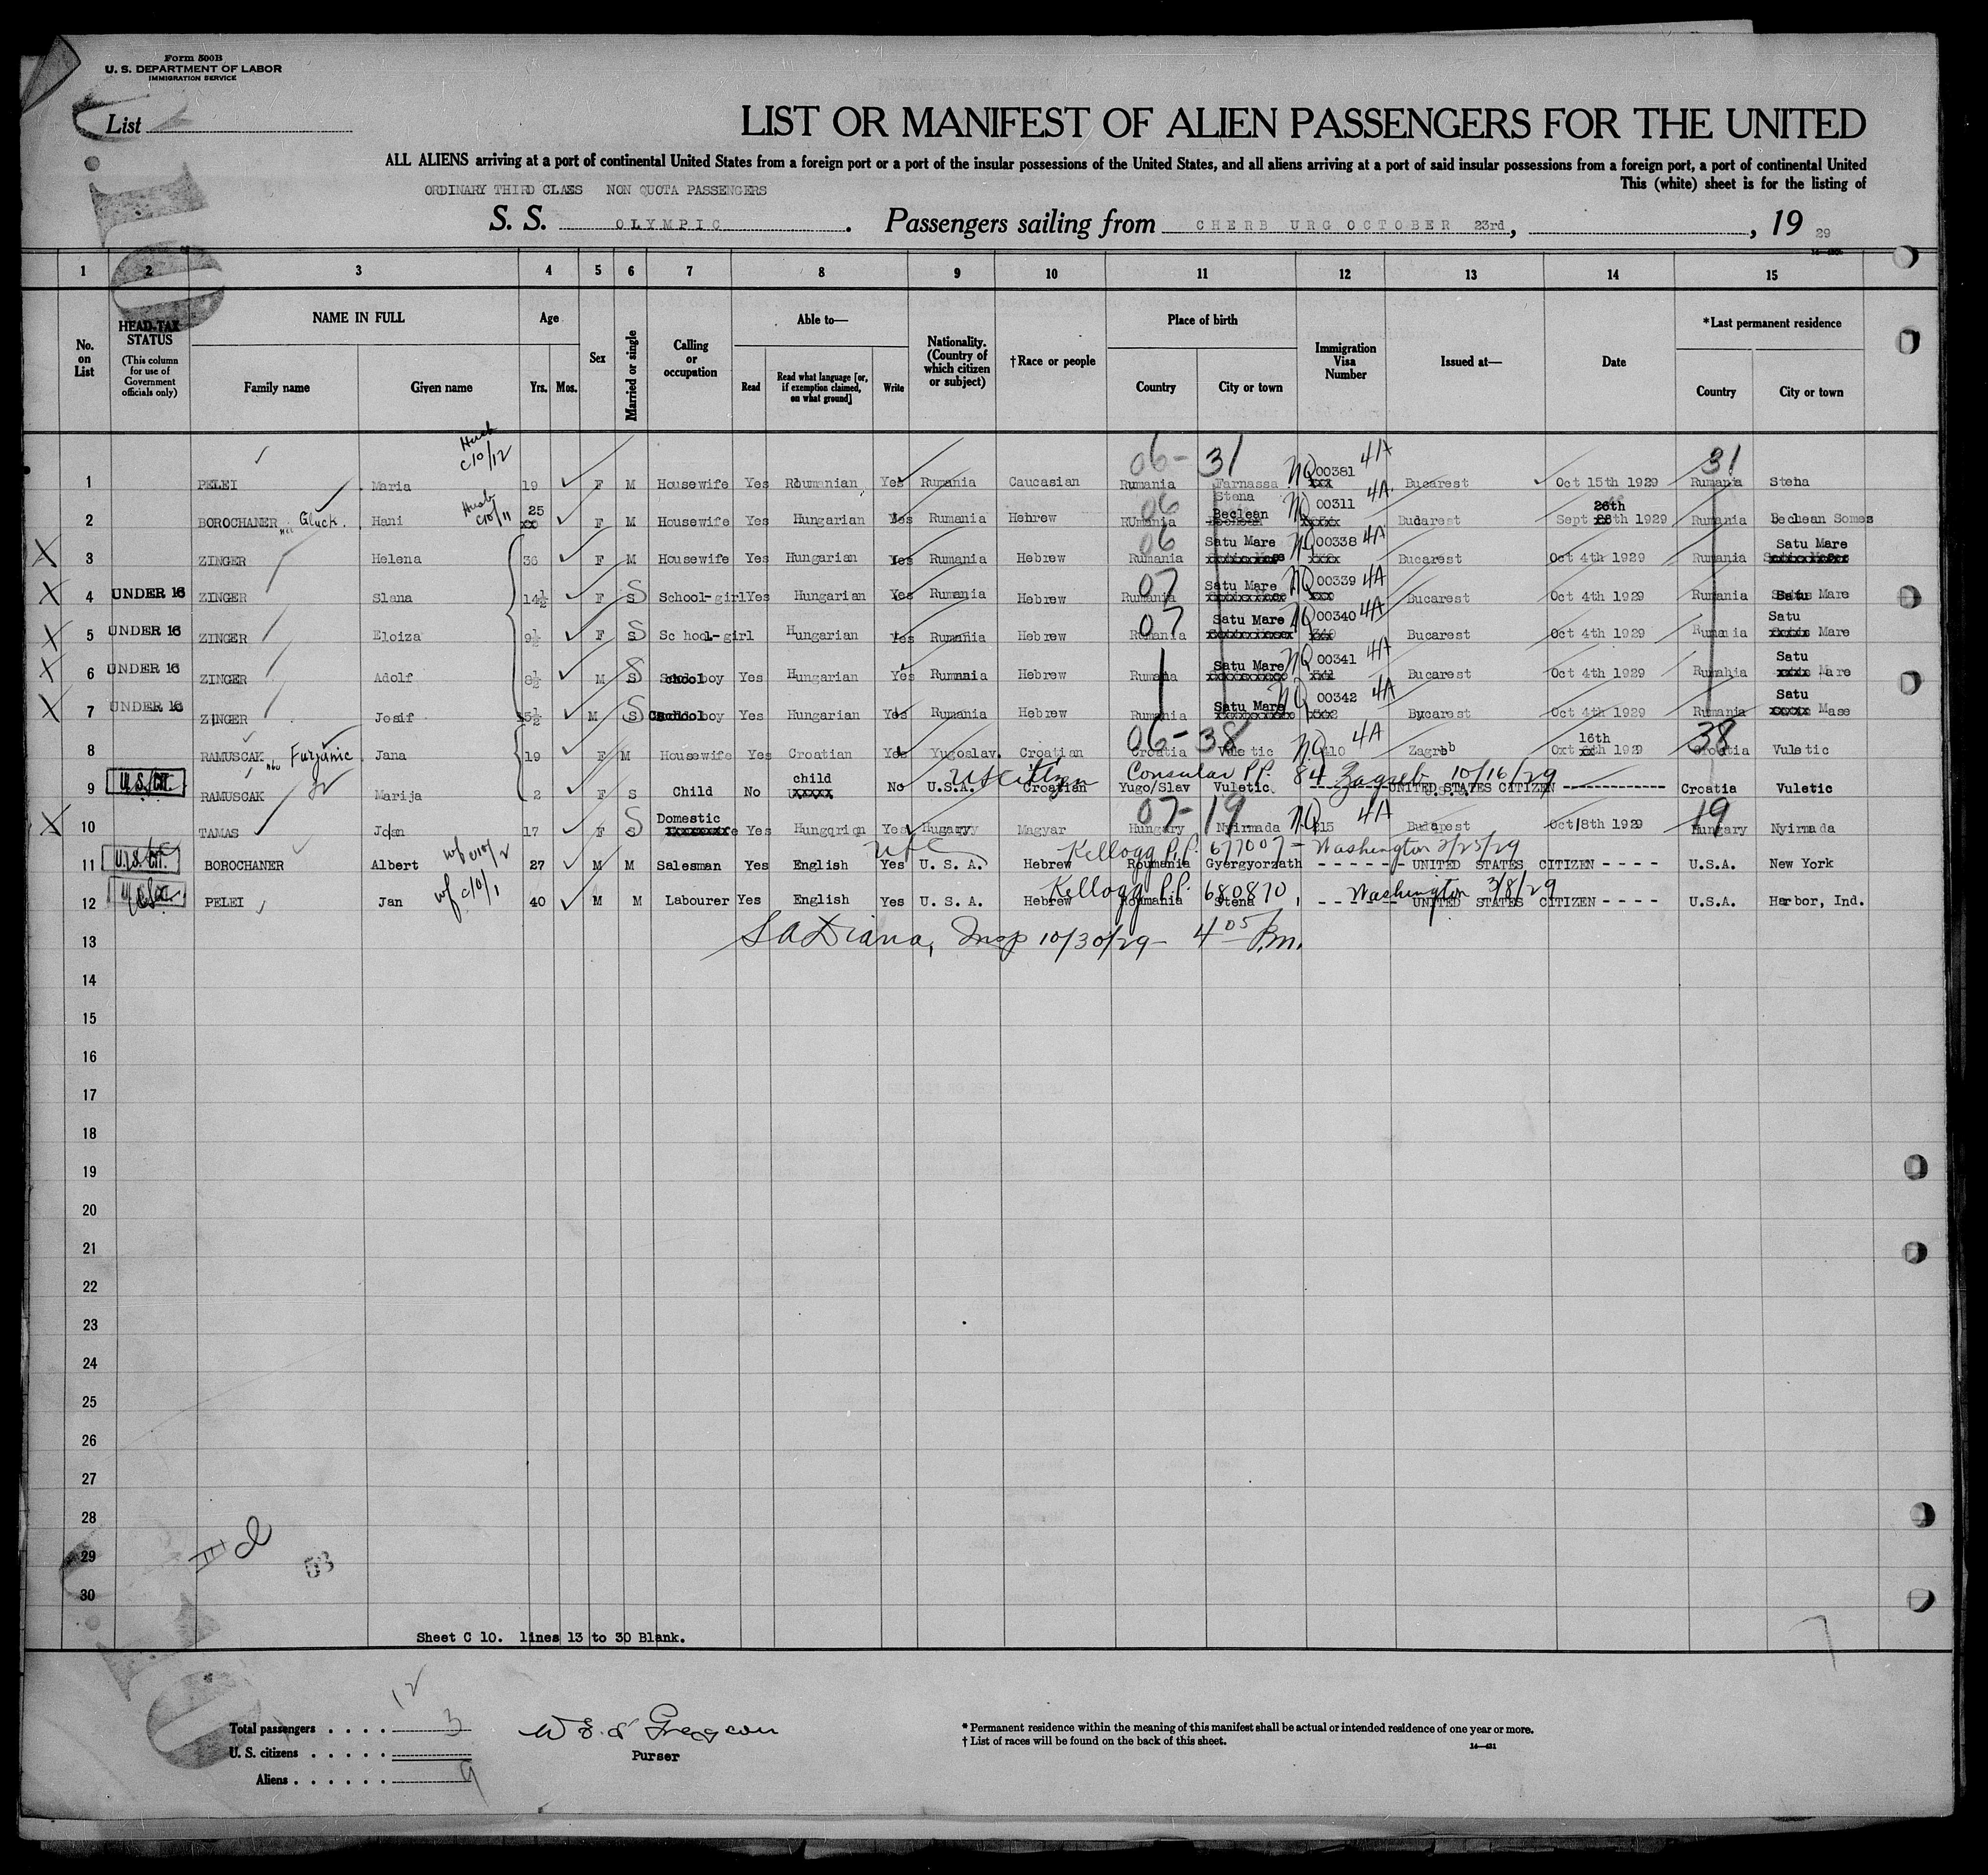 Form 500B
U. S. DEPARTMENT OF LABOR
IMMIGRATION SERVICE
List
LIST OR MANIFEST OF ALIEN PASSENGERS FOR THE UNITED
ALL ALIENS arriving at a port of continental United States from a foreign port or a port of the insular possessions of the United States, and all aliens arriving at a port of said insular possessions from a foreign port, a port of continental United
ORDINARY THIRD CLASS NON QUOTA PASSENGERS
This (white) sheet is for the listing of
S. S. OLYMPIC. Passengers sailing from CHERB URG OCTOBER 23rd, , 19 29
1 2 3 4 5 6 7 8 9 10 11 12 13 14 15
No. on List
HEAD-TAX STATUS (This column for use of Government officials only)
NAME IN FULL
Family name Given name
Age
Yrs. Mos.
Sex
Married or single
Calling or occupation
Able to—
Read Read what language [or, if exemption claimed, on what ground] Write
Nationality. (Country of which citizen or subject)
†Race or people
Place of birth
Country City or town
Immigration Visa Number
Issued at—
Date
*Last permanent residence
Country City or town
Husb c10/12
06- 31 NQ 4A 31
1 PELEI Maria 19 F M Housewife Yes Roumanian Yes Rumania Caucasian Rumania Farnassa Stena 00381 Bucarest Oct 15th 1929 Rumania Steha
2 BOROCHANER nee Gluck. Hani Husb c10/11 25 F M Housewife Yes Hungarian Yes Rumania Hebrew 06 RUmania Beclean NQ 00311 4A Budarest Sept 26th 1929 Rumania Beclean Somes
X 3 ZINGER Helena 36 F M Housewife Yes Hungarian Yes Rumania Hebrew 06 Rumania Satu Mare NQ 00338 4A Bucarest Oct 4th 1929 Rumania Satu Mare
X 4 UNDER 16 ZINGER Slena 14½ F S School-girl Yes Hungarian Yes Rumania Hebrew 07 Rumania Satu Mare NQ 00339 4A Bucarest Oct 4th 1929 Rumania Satu Mare
X 5 UNDER 16 ZINGER Eloiza 9½ F S Sc hool-girl Hungarian Yes Rumania Hebrew 07 Rumania Satu Mare NQ 00340 4A Bucarest Oct 4th 1929 Rumania Satu Mare
X 6 UNDER 16 ZINGER Adolf 8½ M S School boy Yes Hungarian Yes Rumania Hebrew Rumania Satu Mare NQ 00341 4A Bucarest Oct 4th 1929 Rumahia Satu Mare
X 7 UNDER 16 ZINGER Josif 5½ M S School boy Yes Hungarian Yes Rumania Hebrew Rumania Satu Mare NQ 00342 4A Bucarest Oct 4th 1929 Rumania Satu Mase
8 RAMUSCAK nee Furjanic Jana 19 F M Housewife Yes Croatian Yes Yugoslav. Croatian 06-38 Croatia Vuletic NQ 110 4A Zagreb Oxt 16th 1929 38 Croatia Vuletic
9 U.S. CIT. RAMUSCAK Marija 2 F S Child No child No U.S.A. US citizen Croatian Consular P.P. 84 Zagreb 10/16/29 Yugo/Slav Vuletic UNITED STATES CITIZEN ------------ Croatia Vuletic
X 10 TAMAS Joan 17 F S Domestic Yes Hungqrian Yes Hugaryy Magyar 07-19 Hungary Nyirmada NQ 215 4A Budapest Oct 18th 1929 19 Hungary Nyirmada
11 U.S. CIT. BOROCHANER Albert wf c10/2 27 M M Salesman Yes English Yes U. S. A. Hebrew Kellogg P.P. 677007 - Washington 2/25/29 Roumania Gyergyorzath - - - - - - UNITED STATES CITIZEN - - - - U.S.A. New York
12 PELEI Jan wf c10/1 40 M M Labourer Yes English Yes U. S. A. Hebrew Kellogg P.P. 680870, Washington 3/8/29 Roumania Stena - - - - - - UNITED STATES CITIZEN - - - - U.S.A. Harbor, Ind.
13 SADiana, Insp 10/30/29 - 4 05 P.m.
14
15
16
17
18
19
20
21
22
23
24
25
26
27
28
29
30
III d
53
Sheet C 10. lines 13 to 30 Blank.
Total passengers . . . . 12
3
U. S. citizens . . . . .
Aliens . . . . . . 9
Purser
* Permanent residence within the meaning of this manifest shall be actual or intended residence of one year or more.
† List of races will be found on the back of this sheet.
14—421